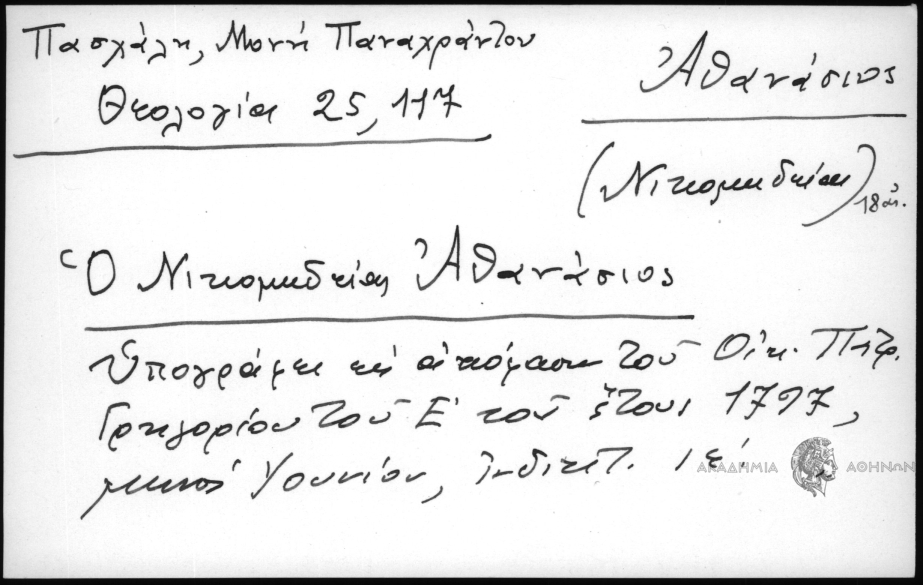 Πασχάλη, Μονή Παναχράντου
Θεολογία 25, 117
Ἀθανάσιος
(Νικομηδείας) 18 αἰ.
Ὁ Νικομηδείας Ἀθανάσιος
Ὑπογράφει εἰς ἀπόφασιν τοῦ Οἰκ. Πατρ.
Γρηγορίου τοῦ Ε' τοῦ ἔτους 1797,
μηνός Ἰουνίου, ἰνδικτ. ιε'.
ΑΚΑΔΗΜΙΑ ΑΘΗΝΩΝ